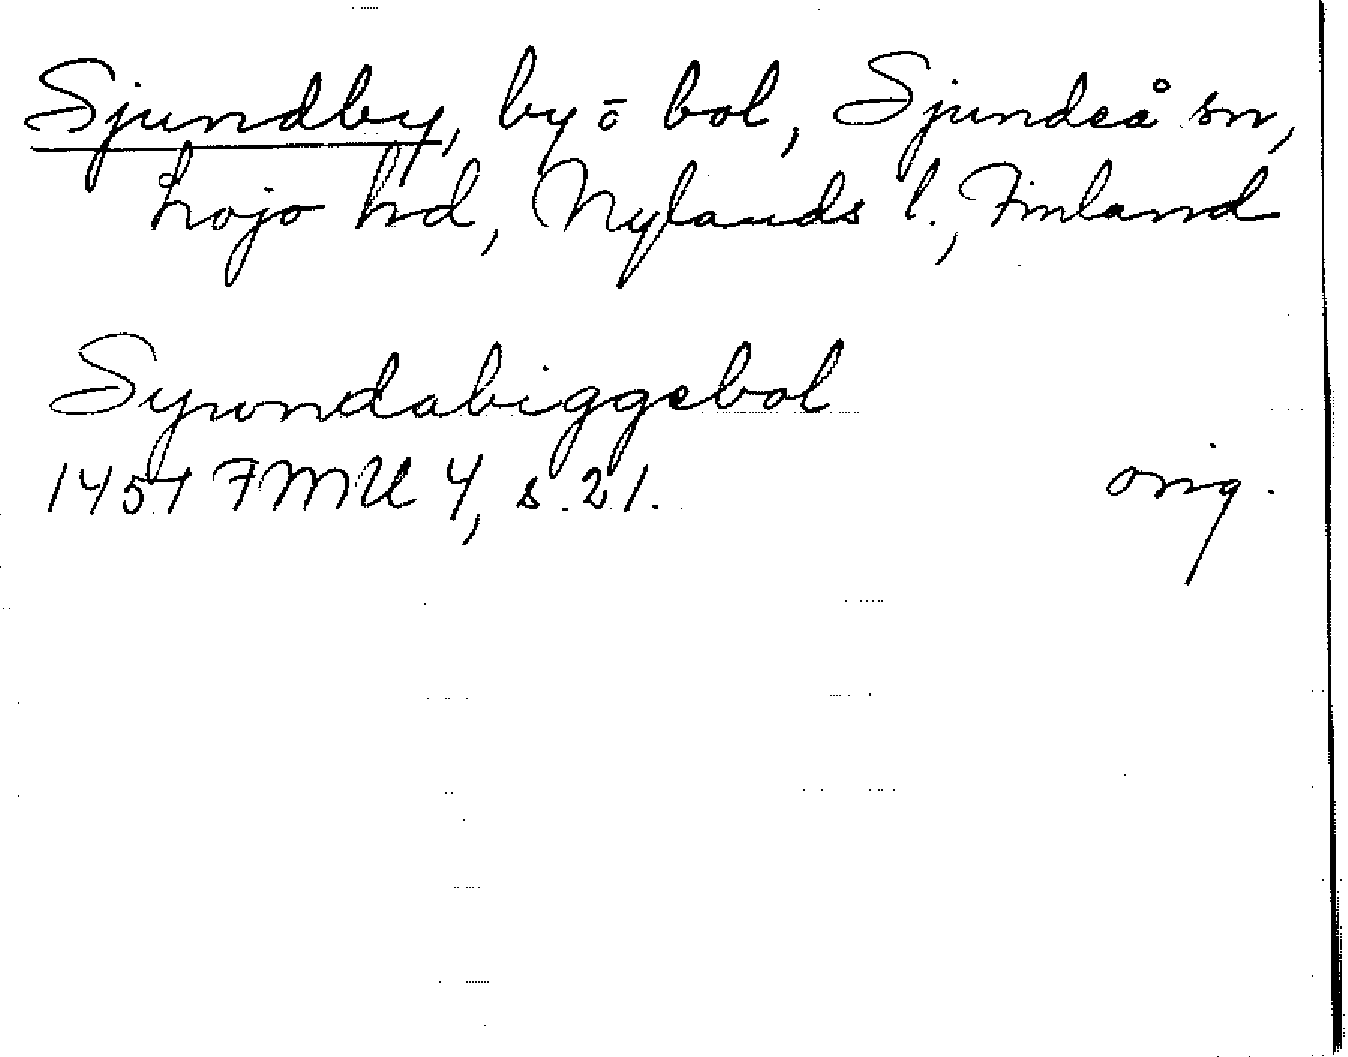 Sjundby, by o bol, Sjundeå sn,
Lojo hd, Nylands l., Finland
Sywndabiggebol
1451 FMU 4, s. 21.
orig.